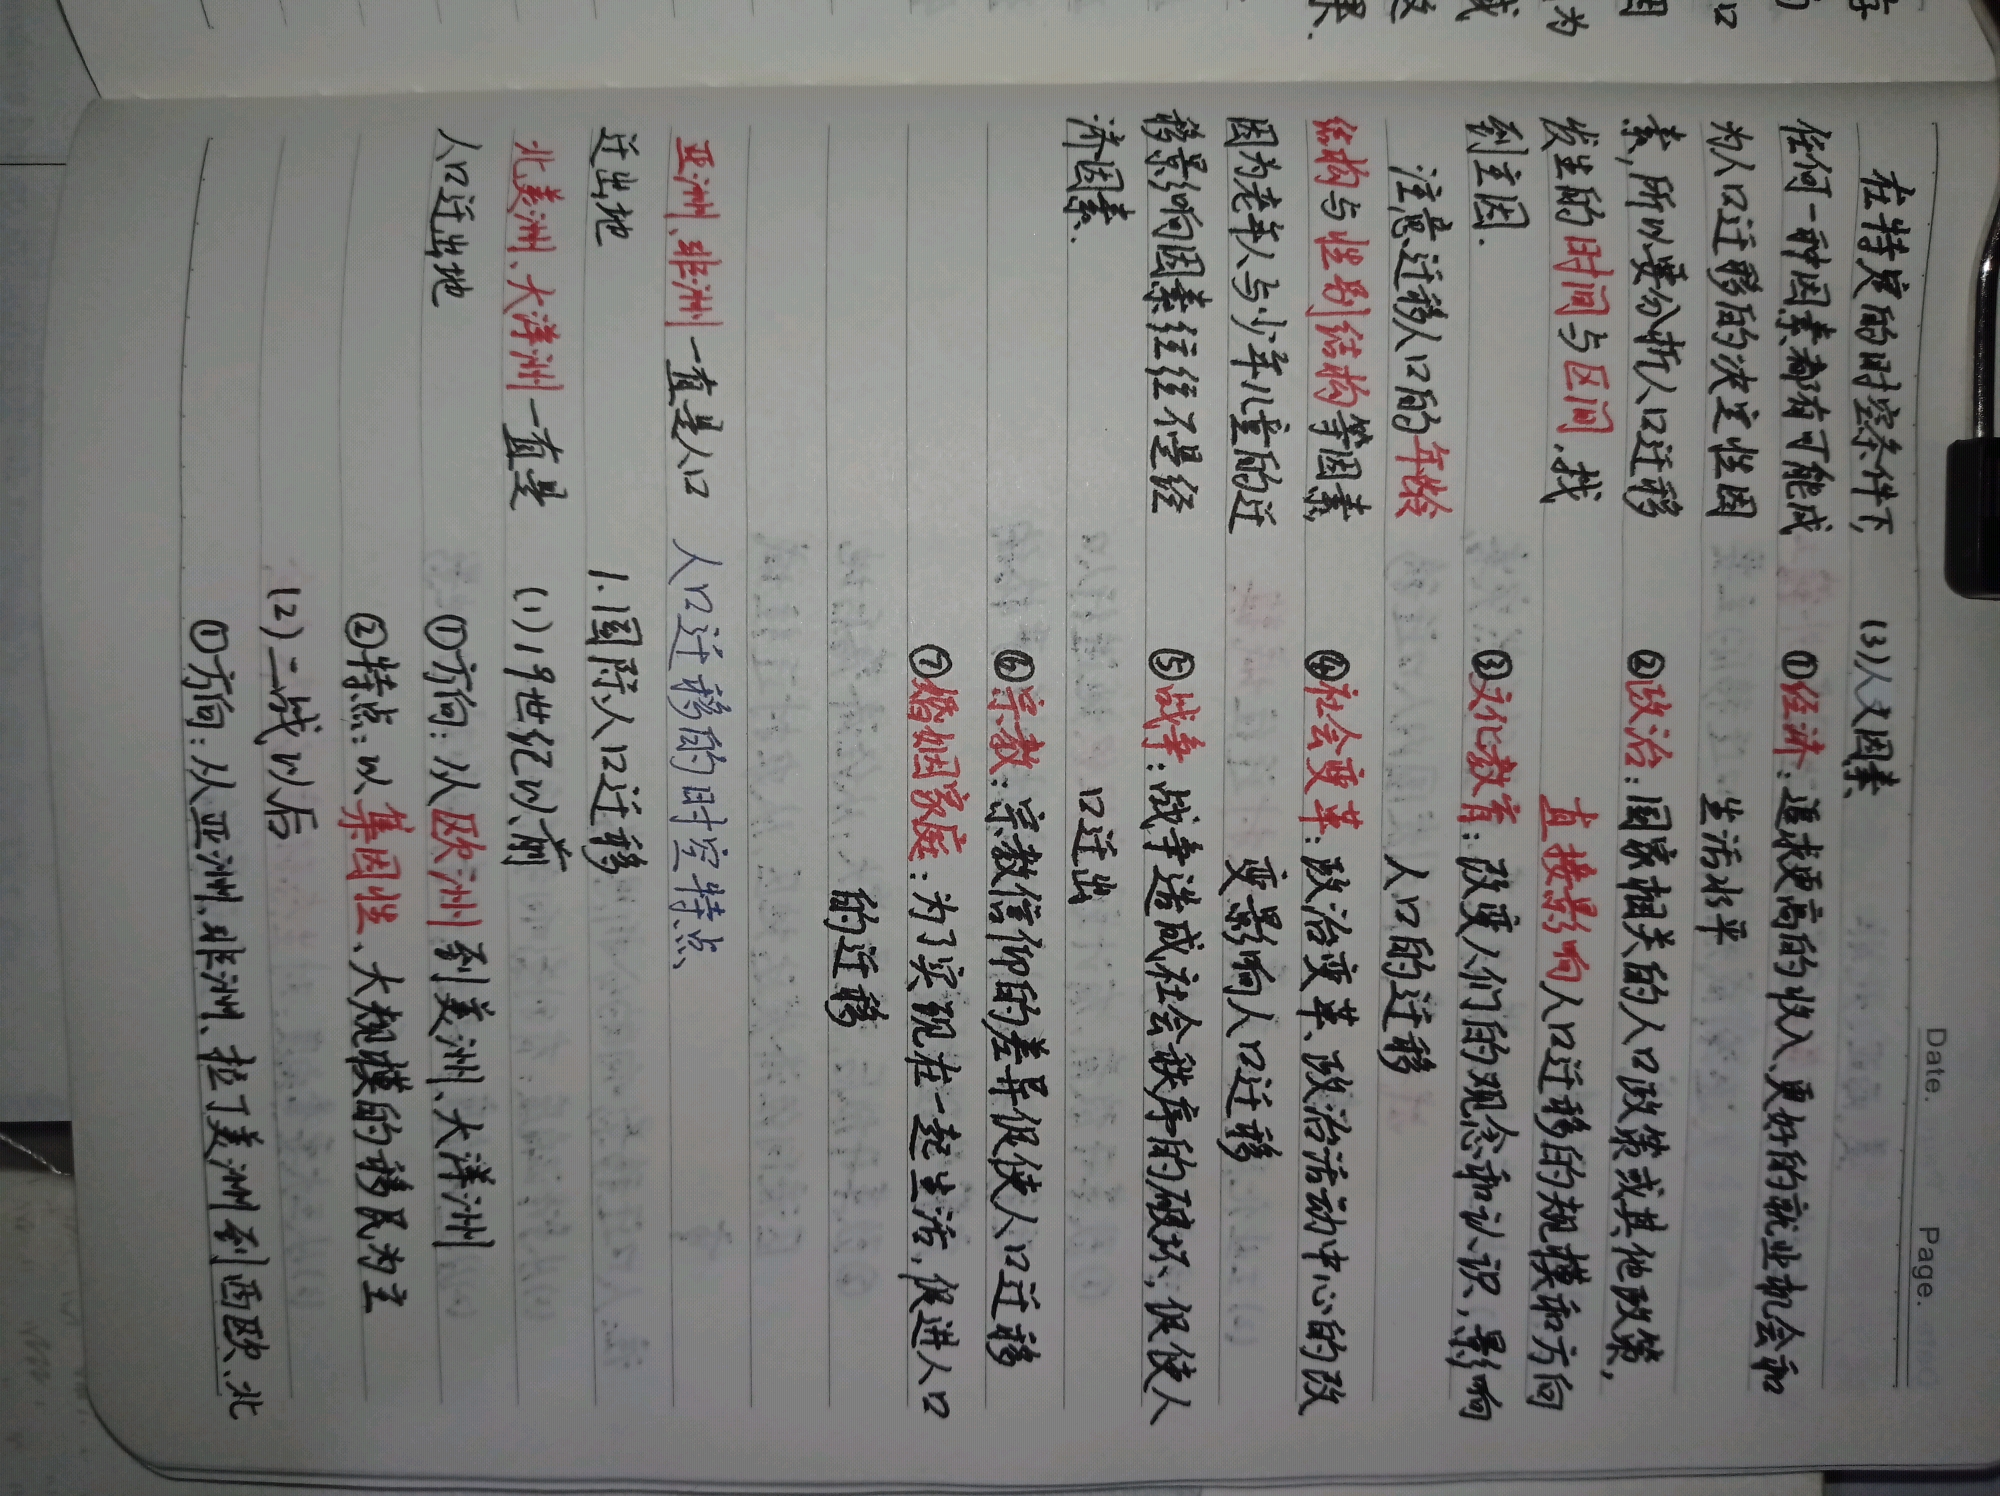 Date.
Page.
在特定的时空条件下,
任何一种因素都有可能成
为人口迁移的决定性因
素,所以要分析人口迁移
发生的时间与区间,找
到主因.
注意迁移人口的年龄
结构与性别结构等因素,
因为老年人与少年儿童的迁
移影响因素往往不是经
济因素.
亚洲、非洲一直是人口
迁出地
北美洲、大洋洲一直是
人口迁出地
(3)人文因素
①经济:追求更高的收入、更好的就业机会和
生活水平
②政治:国家相关的人口政策或其他政策,
直接影响人口迁移的规模和方向
③文化教育:改变人们的观念和认识,影响
人口的迁移
④社会变革:政治变革、政治活动中心的改
变影响人口迁移
⑤战争:战争造成社会秩序的破坏,促使人
口迁出
⑥宗教:宗教信仰的差异促使人口迁移
⑦婚姻家庭:为了实现在一起生活,促进人口
的迁移
人口迁移的时空特点
1.国际人口迁移
(1)19世纪以前
①方向:从欧洲到美洲、大洋洲
②特点:以集团性、大规模的移民为主
(2)二战以后
①方向:从亚洲、非洲、拉丁美洲到西欧、北